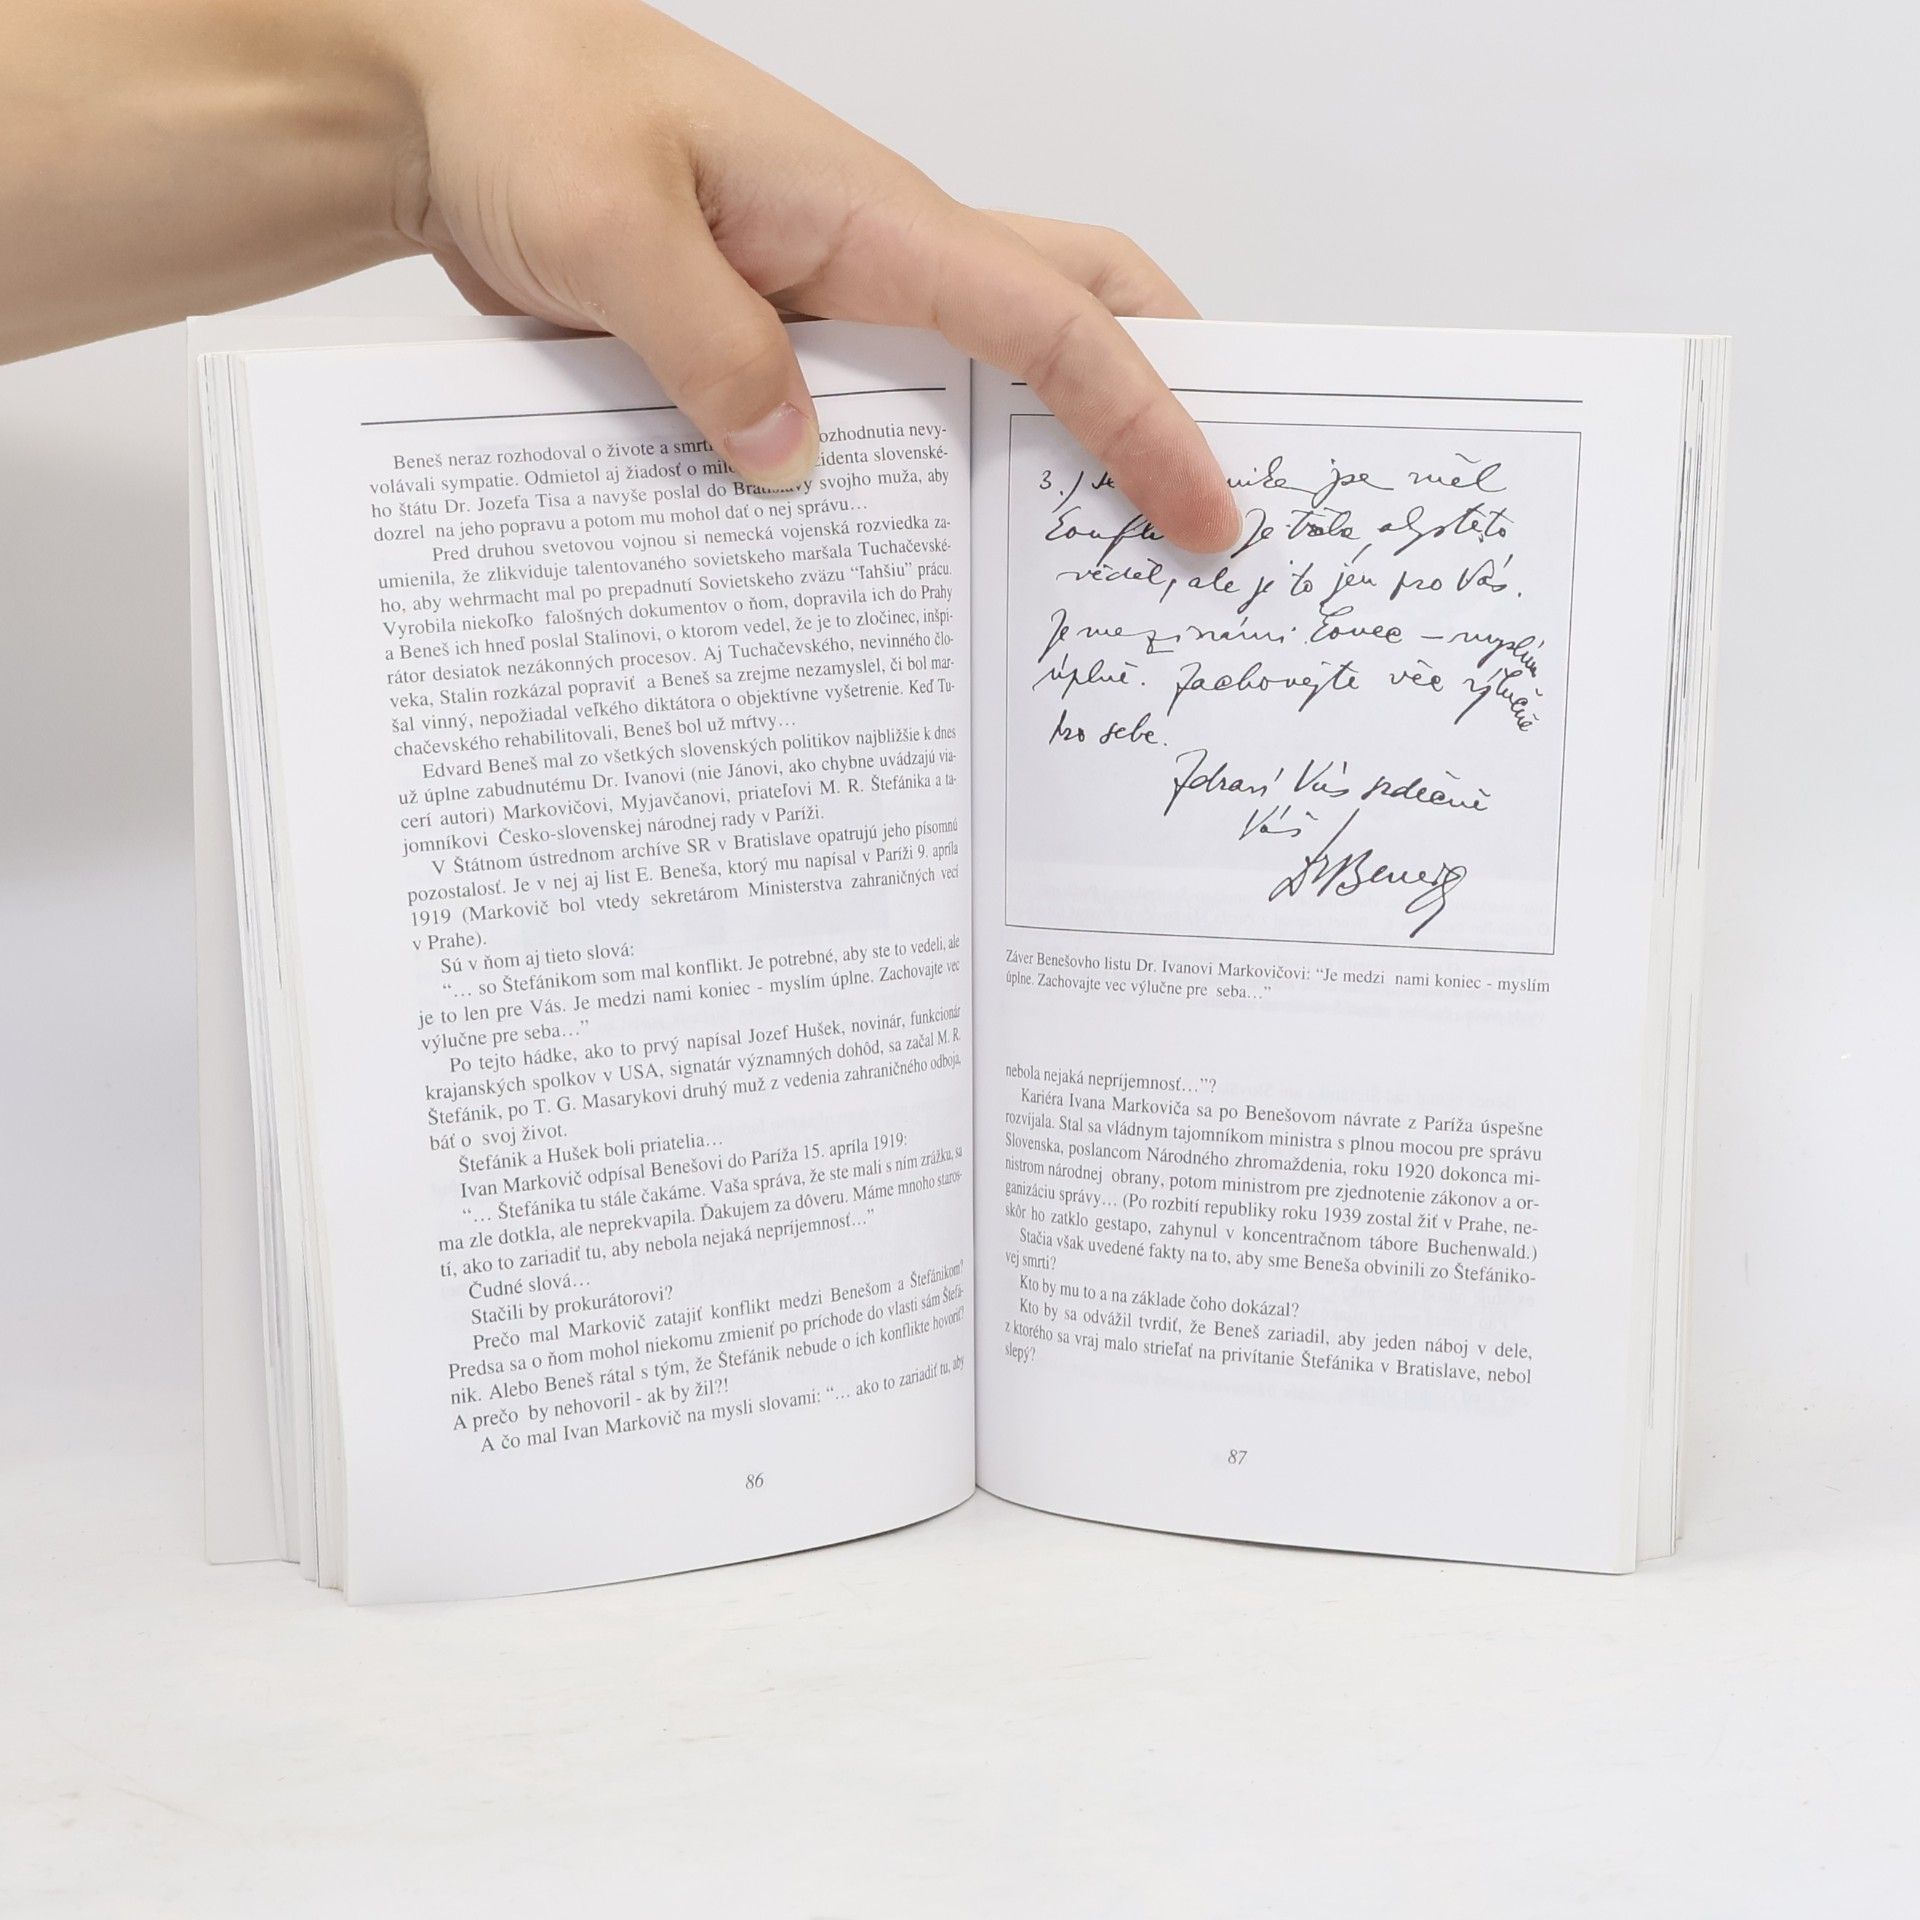 Beneš neraz rozhodoval o živote a smrti ozhodnutia nevy-
volávali sympatie. Odmietol aj žiadosť o zidenta slovenské-
ho štátu Dr. Jozefa Tisa a navyše poslal do Bratislavy svojho muža, aby
dozrel na jeho popravu a potom mu mohol dať o nej správu…
Pred druhou svetovou vojnou si nemecká vojenská rozviedka za-
umienila, že zlikviduje talentovaného sovietskeho maršala Tuchačevské-
ho, aby wehrmacht mal po prepadnutí Sovietskeho zväzu “ľahšiu” prácu.
Vyrobila niekoľko falošných dokumentov o ňom, dopravila ich do Prahy
a Beneš ich hneď poslal Stalinovi, o ktorom vedel, že je to zločinec, inšpi-
rátor desiatok nezákonných procesov. Aj Tuchačevského, nevinného člo-
veka, Stalin rozkázal popraviť a Beneš sa zrejme nezamyslel, či bol mar-
šal vinný, nepožiadal veľkého diktátora o objektívne vyšetrenie. Keď Tu-
chačevského rehabilitovali, Beneš bol už mŕtvy…
Edvard Beneš mal zo všetkých slovenských politikov najbližšie k dnes
už úplne zabudnutému Dr. Ivanovi (nie Jánovi, ako chybne uvádzajú via-
cerí autori) Markovičovi, Myjavčanovi, priateľovi M. R. Štefánika a ta-
jomníkovi Česko-slovenskej národnej rady v Paríži.
V Štátnom ústrednom archíve SR v Bratislave opatrujú jeho písomnú
pozostalosť. Je v nej aj list E. Beneša, ktorý mu napísal v Paríži 9. apríla
1919 (Markovič bol vtedy sekretárom Ministerstva zahraničných vecí
v Prahe).
Sú v ňom aj tieto slová:
“… so Štefánikom som mal konflikt. Je potrebné, aby ste to vedeli, ale
je to len pre Vás. Je medzi nami koniec - myslím úplne. Zachovajte vec
výlučne pre seba…”
Po tejto hádke, ako to prvý napísal Jozef Hušek, novinár, funkcionár
krajanských spolkov v USA, signatár významných dohôd, sa začal M. R.
Štefánik, po T. G. Masarykovi druhý muž z vedenia zahraničného odboja,
báť o svoj život.
Štefánik a Hušek boli priatelia…
Ivan Markovič odpísal Benešovi do Paríža 15. apríla 1919:
“… Štefánika tu stále čakáme. Vaša správa, že ste mali s ním zrážku, sa
ma zle dotkla, ale neprekvapila. Ďakujem za dôveru. Máme mnoho staros-
tí, ako to zariadiť tu, aby nebola nejaká nepríjemnosť…”
Čudné slová…
Stačili by prokurátorovi?
Prečo mal Markovič zatajiť konflikt medzi Benešom a Štefánikom?
Predsa sa o ňom mohol niekomu zmieniť po príchode do vlasti sám Štefá-
nik. Alebo Beneš rátal s tým, že Štefánik nebude o ich konflikte hovoriť?
A prečo by nehovoril - ak by žil?!
A čo mal Ivan Markovič na mysli slovami: “… ako to zariadiť tu, aby
86
3.) nika jse měl
Je třeba, abyste to
věděl, ale je to jen pro Vás.
Je mezi námi konec – myslím
úplně. Zachovejte věc výlučně
pro sebe.
Zdraví Vás srdečně
Váš
Dr Beneš
Záver Benešovho listu Dr. Ivanovi Markovičovi: “Je medzi nami koniec - myslím
úplne. Zachovajte vec výlučne pre seba…”
nebola nejaká nepríjemnosť…”?
Kariéra Ivana Markoviča sa po Benešovom návrate z Paríža úspešne
rozvíjala. Stal sa vládnym tajomníkom ministra s plnou mocou pre správu
Slovenska, poslancom Národného zhromaždenia, roku 1920 dokonca mi-
nistrom národnej obrany, potom ministrom pre zjednotenie zákonov a or-
ganizáciu správy… (Po rozbití republiky roku 1939 zostal žiť v Prahe, ne-
skôr ho zatklo gestapo, zahynul v koncentračnom tábore Buchenwald.)
Stačia však uvedené fakty na to, aby sme Beneša obvinili zo Štefániko-
vej smrti?
Kto by mu to a na základe čoho dokázal?
Kto by sa odvážil tvrdiť, že Beneš zariadil, aby jeden náboj v dele,
z ktorého sa vraj malo strieľať na privítanie Štefánika v Bratislave, nebol
slepý?
87